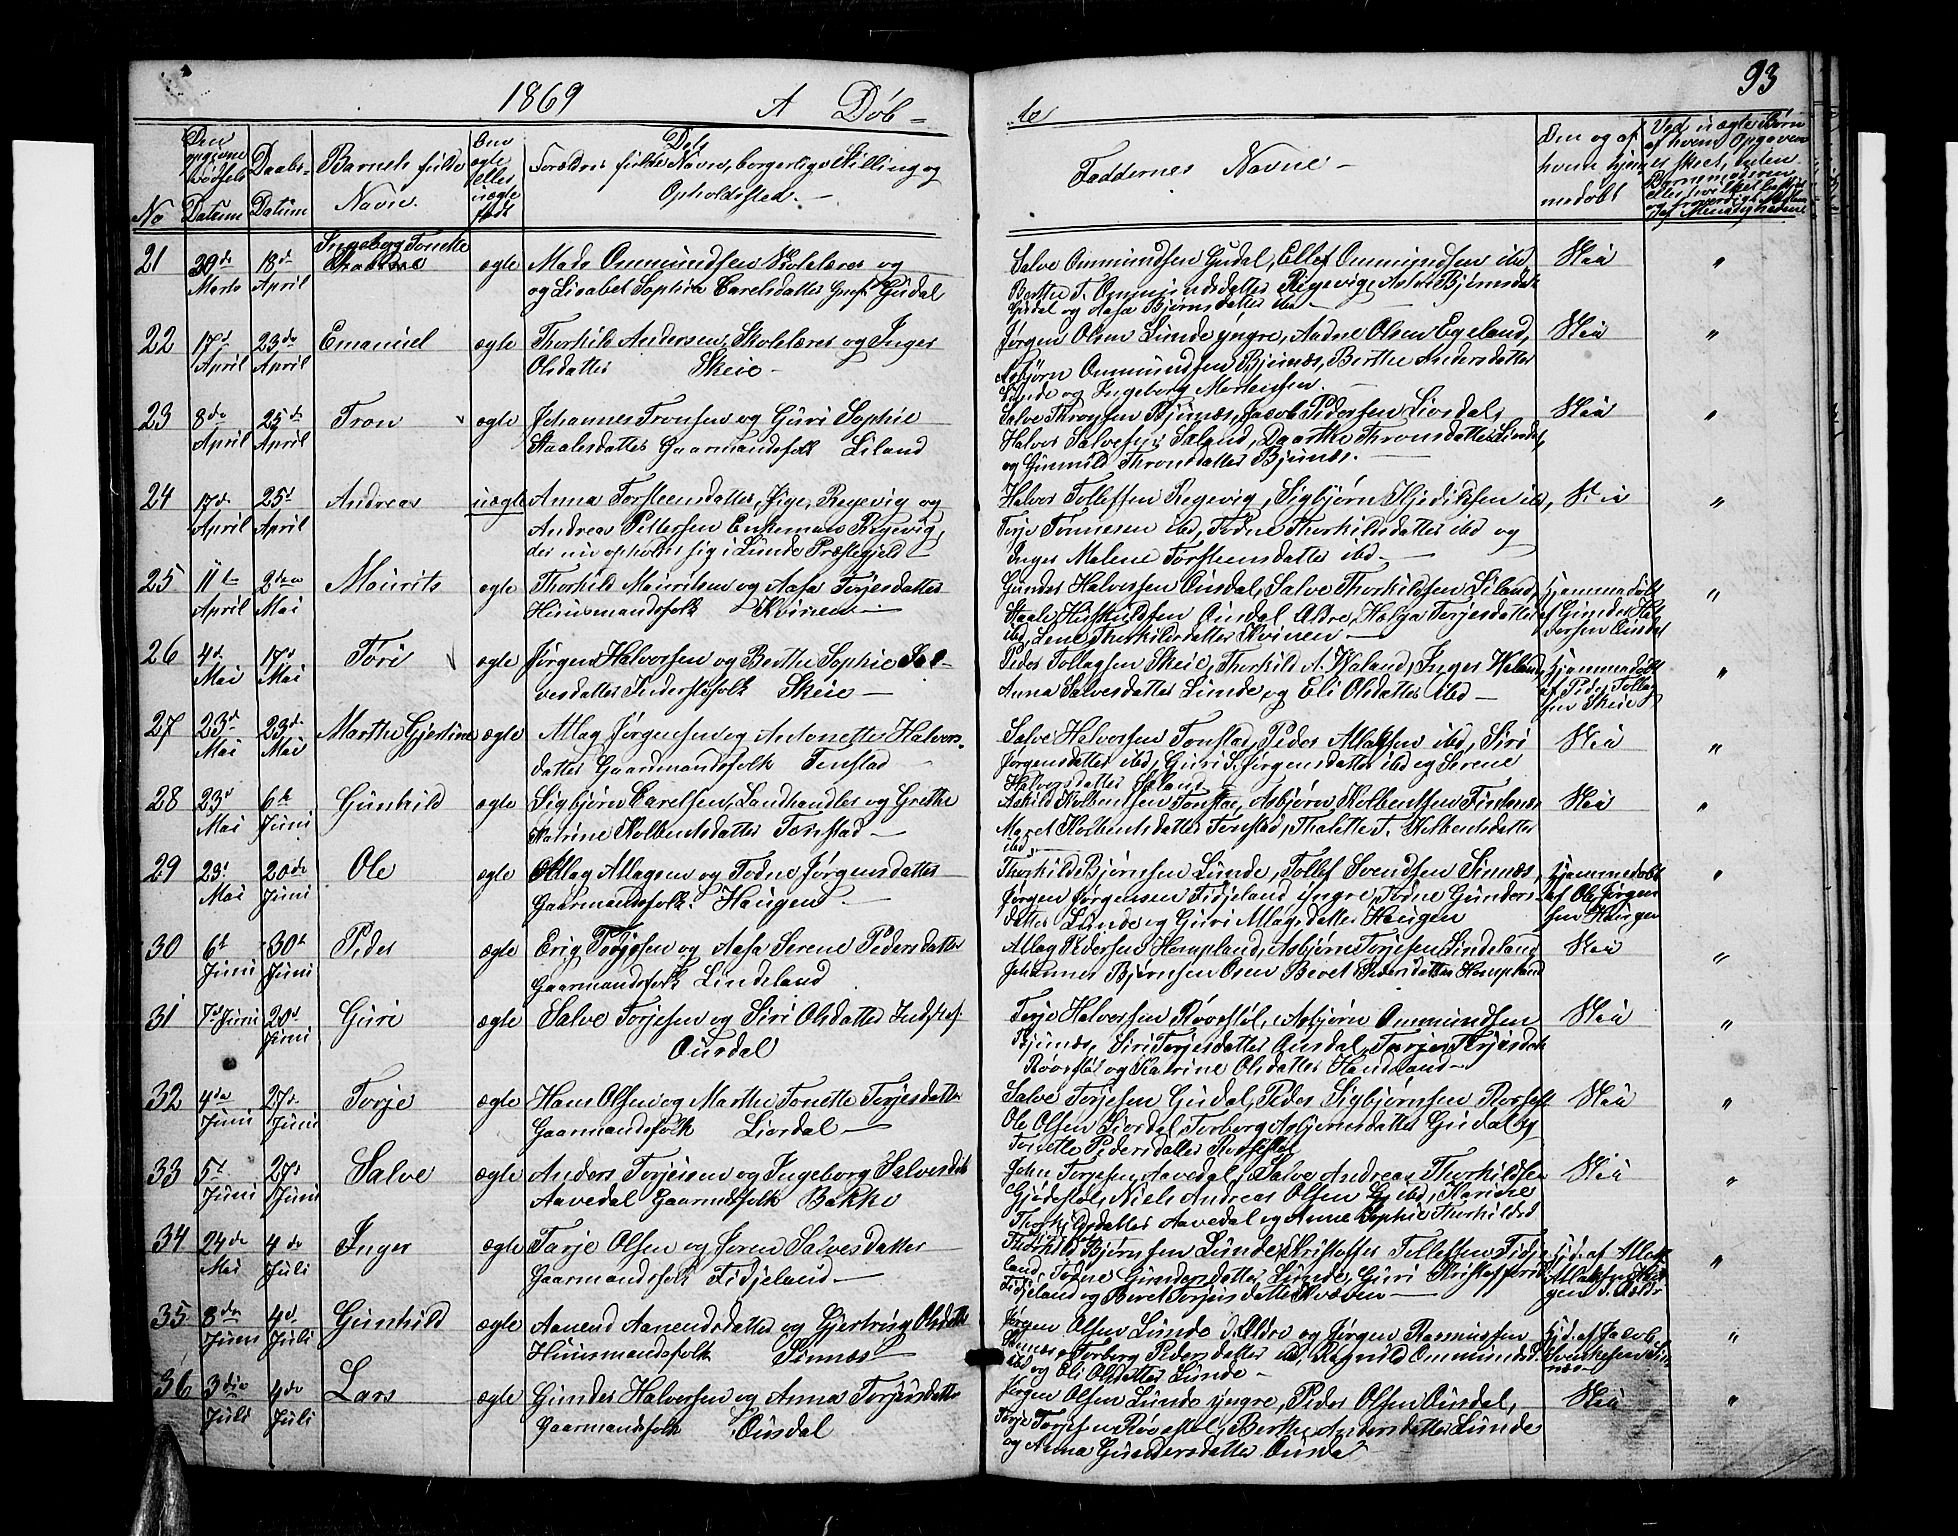 1869 A Døb-
te 93
No
Den opgivne Fødsels Datum
Daabs- Datum
Barnets fulde Navn
Om ægte eller uægte født
Forældres fulde Navn, borgerlige Stilling og
Opholdssted.
Faddernes Navne
Om og af hvem hjemmedøbt
Ved uægte Børn af hvem Opgaven er skeet, uden
21 29de Marts 18de April Ingeborg Tonette ægte Mads Ommundsen Skolelærer og
og Lisabet Sophia Carelsdatter Gudal
Salve Ommundsen Gudal, Ellef Ommundsen ibd, Nei "
Berthe T. Ommundsdatter Regevig, Bjørnsdat
Gudal og Aasa Bjørnsdatter ibd
22 17d April 23de April Emanuel ægte Thorkild Andersen, Skolelærer og Inger
Olsdatter Skeie
Jørgen Olsen Lunde yngre, Aadne Olsen Egeland, Nei "
Asbjørn Ommundsen Bjunæs, Berthe Andersdatter
Lunde og Ingeborg
23 8de April 25de April Tron ægte Johannes Tronsen og Guri Sophie
Staalesdatter Gaarmandsfolk Liland
Salve Thronsen Bjunæs, Jacob Pedersen Liordal, Nei "
Halvor Salvesen Daarthe Thronsdatter
og Gunnild Thronsdatter Bjunæs.
24 17de April 25d April Andreas uægte Anna Torsteensdatter, Pige, Regevig og
Andreas Pettersen Enkeman Regevig,
der nu opholder sig i Lunde Præstegjeld
Halvor Tollefsen Regevig, Sigbjørn ibd, Nei "
Torje Tønnesen ibd, Todne Thorkildsdatter ibd og
Inger Malene Torsteensdatter ibd
25 11te April 2den Mai Mourits ægte Thorkild Mouritsen og Aasa Torjesdatter
Huusmandsfolk Kvinen
Gunder Halvorsen Ousdal, Salve Thorkildsen Liland, hjemmedøbt "
Staale Ousdal Ældre, Helga Torjesdatter af Gunder Hal-
ibd, Lene Thorkildsdatter Kvinen vorsen Ousdal
26 4de Mai 17d Mai Tori ægte Jørgen Halvorsen og Berthe Sophie Sal-
vesdatter Inderstefolk Skeie
Peder Tollagsen Skeie, Thorkild A. Haland, Inger Haland, hjemmedøbt "
Anna Salvesdatter Lunde og Eli Olsdatter ibd af Peder Tollag-
sen Skeie
27 23d Mai 23d Mai Marthe Gjertine ægte Atlag Jørgensen og Antonette Halvors-
datter Gaarmandsfolk Tonstad
Salve Halvorsen Tonstad, Peder Atlaksen ibd, Siri Nei "
Jørgensdatter ibd, Guri S. Jørgensdatter ibd og Serene
Halvorsdatter
28 23d Mai 6te Juni Gunhild ægte Sigbjørn Carelsen, Landhandler og Grethe
Katrine Kolbentsdatter Tonstad
Askild Kolbentsen Tonstad, Asbjørn Kolbentsen Nei "
Maret Kolbentsdatter Tonstad, Thalette T. Kolbentsdatter
ibd
29 23d Mai 20de Juni Ole ægte Atlag Atlagsen og Todne Jørgensdatter
Gaarmandsfolk Haugen
Thorkild Bjørnsen Lunde, Tollef Svendsen Sinnæs, Hjemmedøbt "
Jørgen Jørgensen Fidjeland yngre, Todne Gunders- af Ole Jørgen-
datter Lunde og Guri Atlagsdatter Haugen sen Haugen
30 6te Juni 30te Juni Peder ægte Erig Torjesen og Aasa Serene Pedersdatter
Gaarmandsfolk Lindeland
Atlag Pedersen Hompland, Asbjørn Torjesen Lindeland Nei "
Johannes Bjørnsen Osen Beret Pedersdatter Hompland
31 7d Juni 20d Juni Guri ægte Salve Torjesen og Siri Olsdatter
Ousdal
Torje Halvorsen Røvestøl, Asbjørn Ommundsen Nei "
Bjunæs, Siri Torjesdatter Ousdal,
Røvestøl og Katrine Olsdatter Handeland
32 4de Juni 27de Juni Torje ægte Hans Olsen og Marthe Tonette Torjesdatter
Gaarmandsfolk Liordal
Salve Torjesen Gudal, Peder Sigbjørnsen Nei "
Ole Olsen Liordal, Torborg Asbjørnsdatter Gudal og
Tonette Pedersdatter
33 5te Juni 27d Juni Salve ægte Anders Torjesen og Ingeborg Salvesdat
Aavedal Gaarmdsfolk Bakke
John Torjesen Aavedal, Salve Andreas Thorkildsen Nei "
Niels Andreas Olsen ibd, Karine
Thorkildsdatter Aavedal og Anne Sophie Thorkildsd
34 24de Mai 4de Juli Inger ægte Tarje Olsen og Søren Salvesdatter
Gaarmandsfolk Fidjeland
Thorkild Bjørnsen Lunde, Kristoffer Tollefsen Fidje- Hjd. af Atlak "
land, Todne Gundersdatter Lunde, Guri Atlaksen Hau-
Fidjeland og Beret Torjusdatter Kvæven gen d. Ældr
35 8de Juni 4d Juli Gunhild ægte Aanend Aanendsdatter og Gjertrug Olsdatter
Huusmandsfolk Sinnæs
Jørgen Olsen Lunde d. Ældre og Jørgen Rasmussen Hjd. af Jacob "
Sinnæs, Torborg Pedersdatter ibd, Ragnild Ommundsd.
ibd og Eli Olsdatter Lunde
36 3die Juli 4de Juli Lars ægte Gunder Halvorsen og Anna Torjusdatter
Gaarmandsfolk Ousdal
Jørgen Olsen Lunde yngre, Peder Olsen Ousdal, Nei "
Torje Torjesen Røvestøl, Berthe Andersdatter Lunde
og Anna Gundersdatter Ousdal